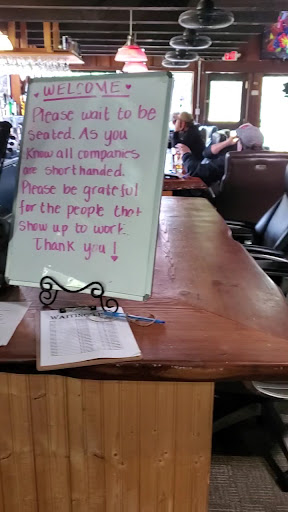 WELCOME
Please wait to be
seated. As you
Know all companies
are shorthanded.
Please be grateful
for the people that
show up to work.
Thank you!
WAITING